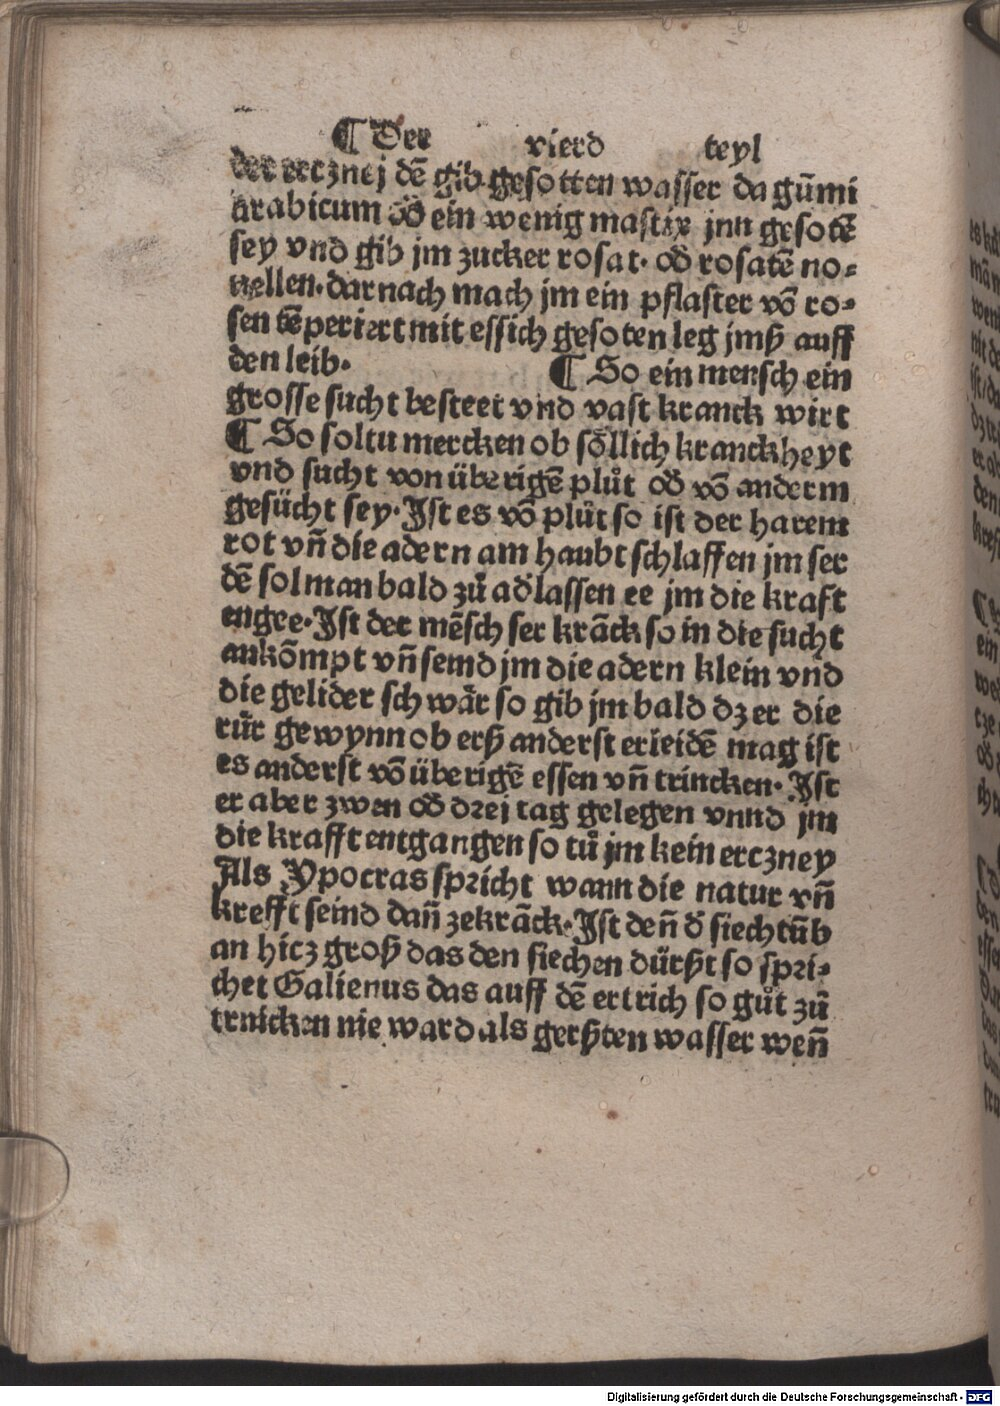 ¶ Der vierd teyl
der ercznej dē gib gesotten wasser da gūmi
arabicum od̄ ein wenig mastix jnn gesotē
sey vnd gib jm zucker rosat· od̄ rosatē no⸗
uellen·darnach mach jm ein pflaster vō ro⸗
sen tēperiert mit essich gesoten leg jmß auff
den leib· ¶ So ein mensch ein
grosse sucht besteet vnd vast kranck wirt
¶ So soltu mercken ob soͤllich kranckheyt
vnd sucht von überigē pluͦt od̄ vō anderm
gesücht sey·Ist es vō pluͦt so ist der harem
rot vñ die adern am haubt schlaffen jm ser
dē sol man bald zuͦ ad̄lassen ee jm die kraft
engee·Ist der mēsch ser krāck so in die sucht
ankōmpt vñ semd jm die adern klein vnd
die gelider schwaͤr so gib jm bald dz er die
ruͦr gewynn ob erß anderst erleidē mag ist
es anderst vō überigē essen vñ trincken·Ist
er aber zwen od̄ drej tag gelegen vnnd jm
die krafft entgangen so tuͦ jm kein erczney
Als Ypocras spricht wann die natur vñ
krefft seind dañ zekrāck·Ist deñ d̄ siechtūb
an hicz groß das den siechen dürßt so spri⸗
chet Galienus das auff dē ertrich so guͦt zū
trnicken nie ward als gerßten wasser weñ
Digitalisierung gefördert durch die Deutsche Forschungsgemeinschaft - DFG